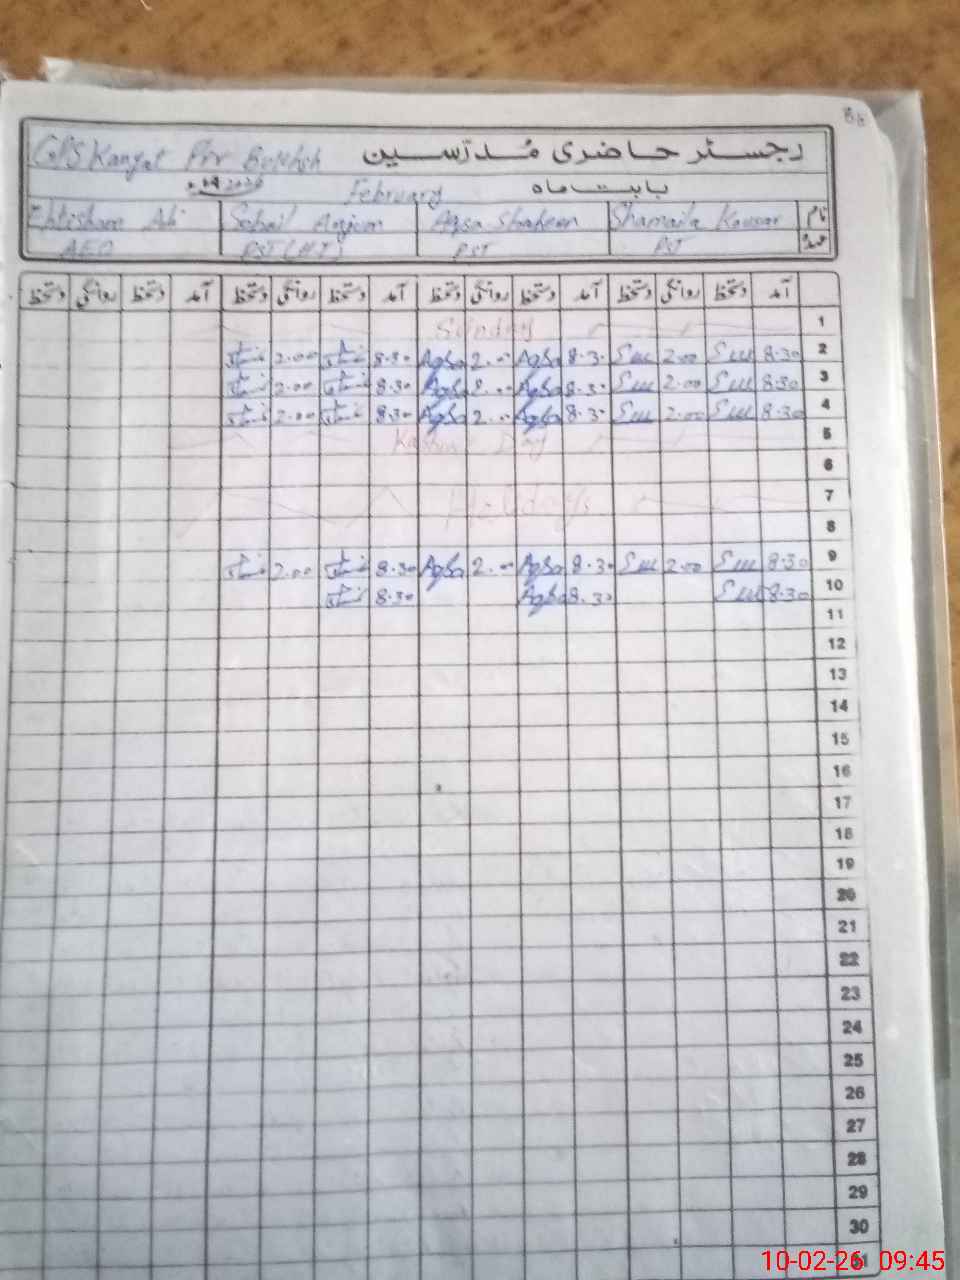 GPS Kangat Pir Bukhsh رجسٹر حاضری مُدرّسین
2026 February بابت ماہ
Ehtisham Ali Sohail Anjum Aqsa Shaheen Shamaila Kausar نام
AEO PST (HT) PST PST عہدہ
آمد دستخط روانگی دستخط آمد دستخط روانگی دستخط آمد دستخط روانگی دستخط آمد دستخط روانگی دستخط
Sunday 1
2.00 8.30 Aqsa 2.00 Aqsa 8.30 2.00 8.30 2
2.00 8.30 Aqsa 2.00 Aqsa 8.30 2.00 8.30 3
2.00 8.30 Aqsa 2.00 Aqsa 8.30 2.00 8.30 4
Kashmir Day 5
6
Holidays 7
8
2.00 8.30 Aqsa 2.00 Aqsa 8.30 2.00 8.30 9
8.30 Aqsa 8.30 8.30 10
11
12
13
14
15
16
17
18
19
20
21
22
23
24
25
26
27
28
29
30
31
10-02-26 09:45